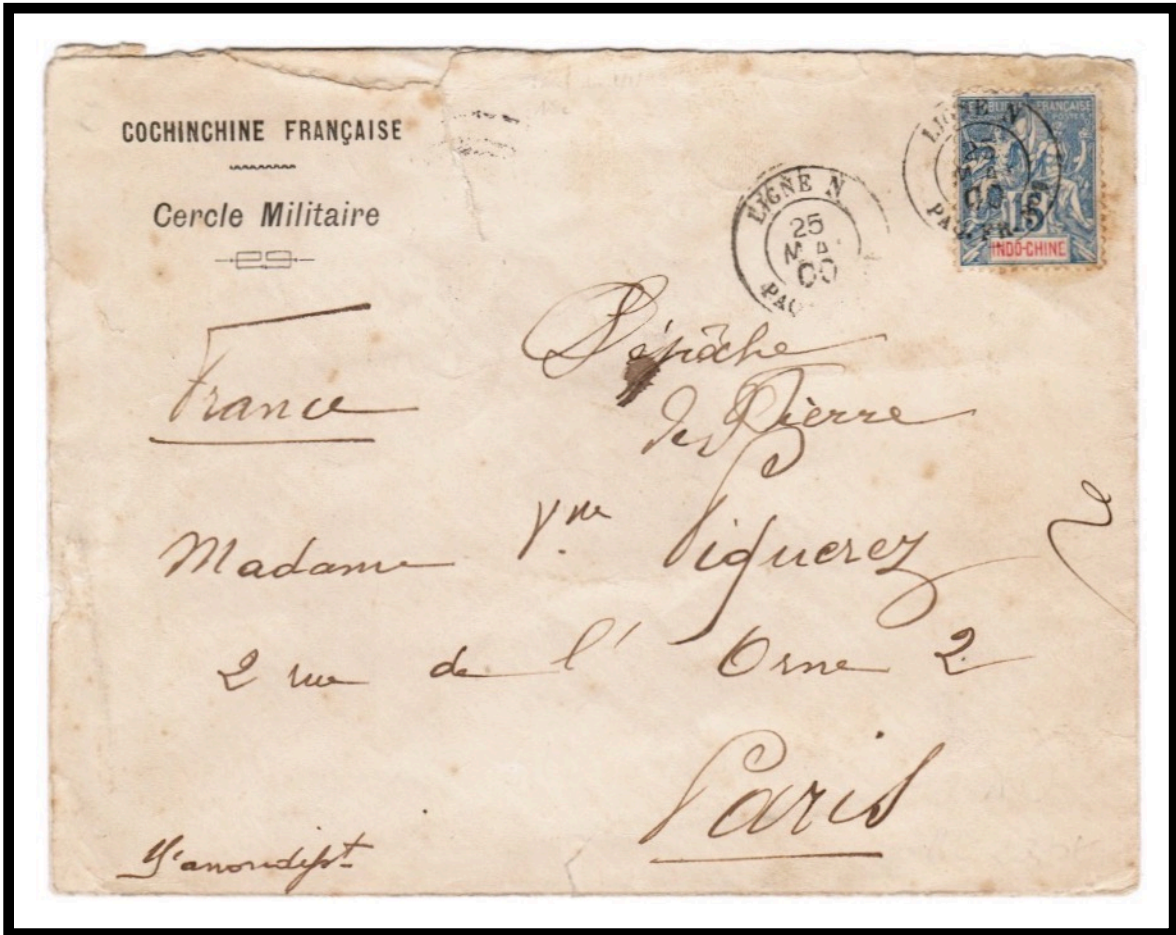 COCHINCHINE FRANÇAISE
Cercle Militaire
LIGNE N
25
MA
00
PAQ
LIGNE N
MAI
00
PAQ. FR.
RÉPUBLIQUE FRANÇAISE
15
INDO-CHINE
France
Dépêche
de Pierre
Madame Vve Piquerez
2 rue de l' Orne 2
Paris